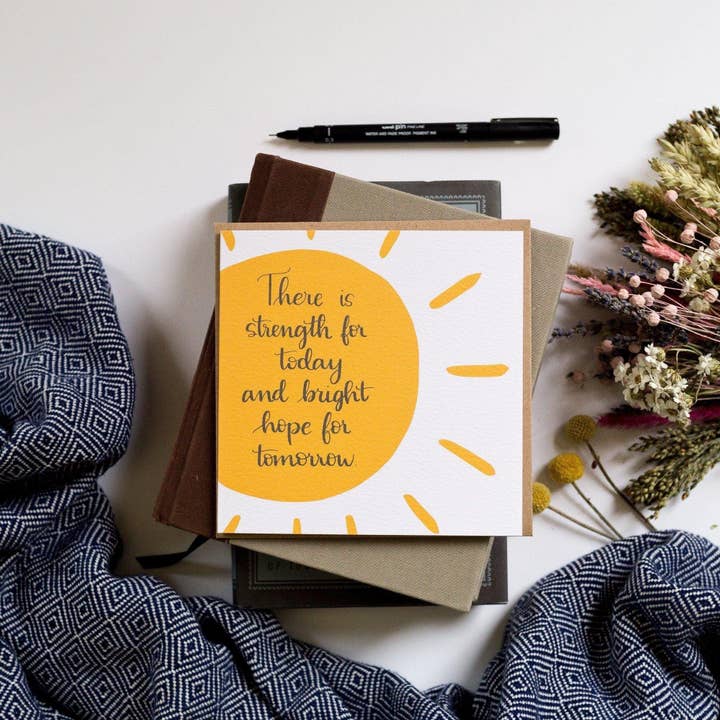 uni pin FINE LINE
WATER AND FADE PROOF, PIGMENT INK
There is
strength for
today
and bright
hope for
tomorrow